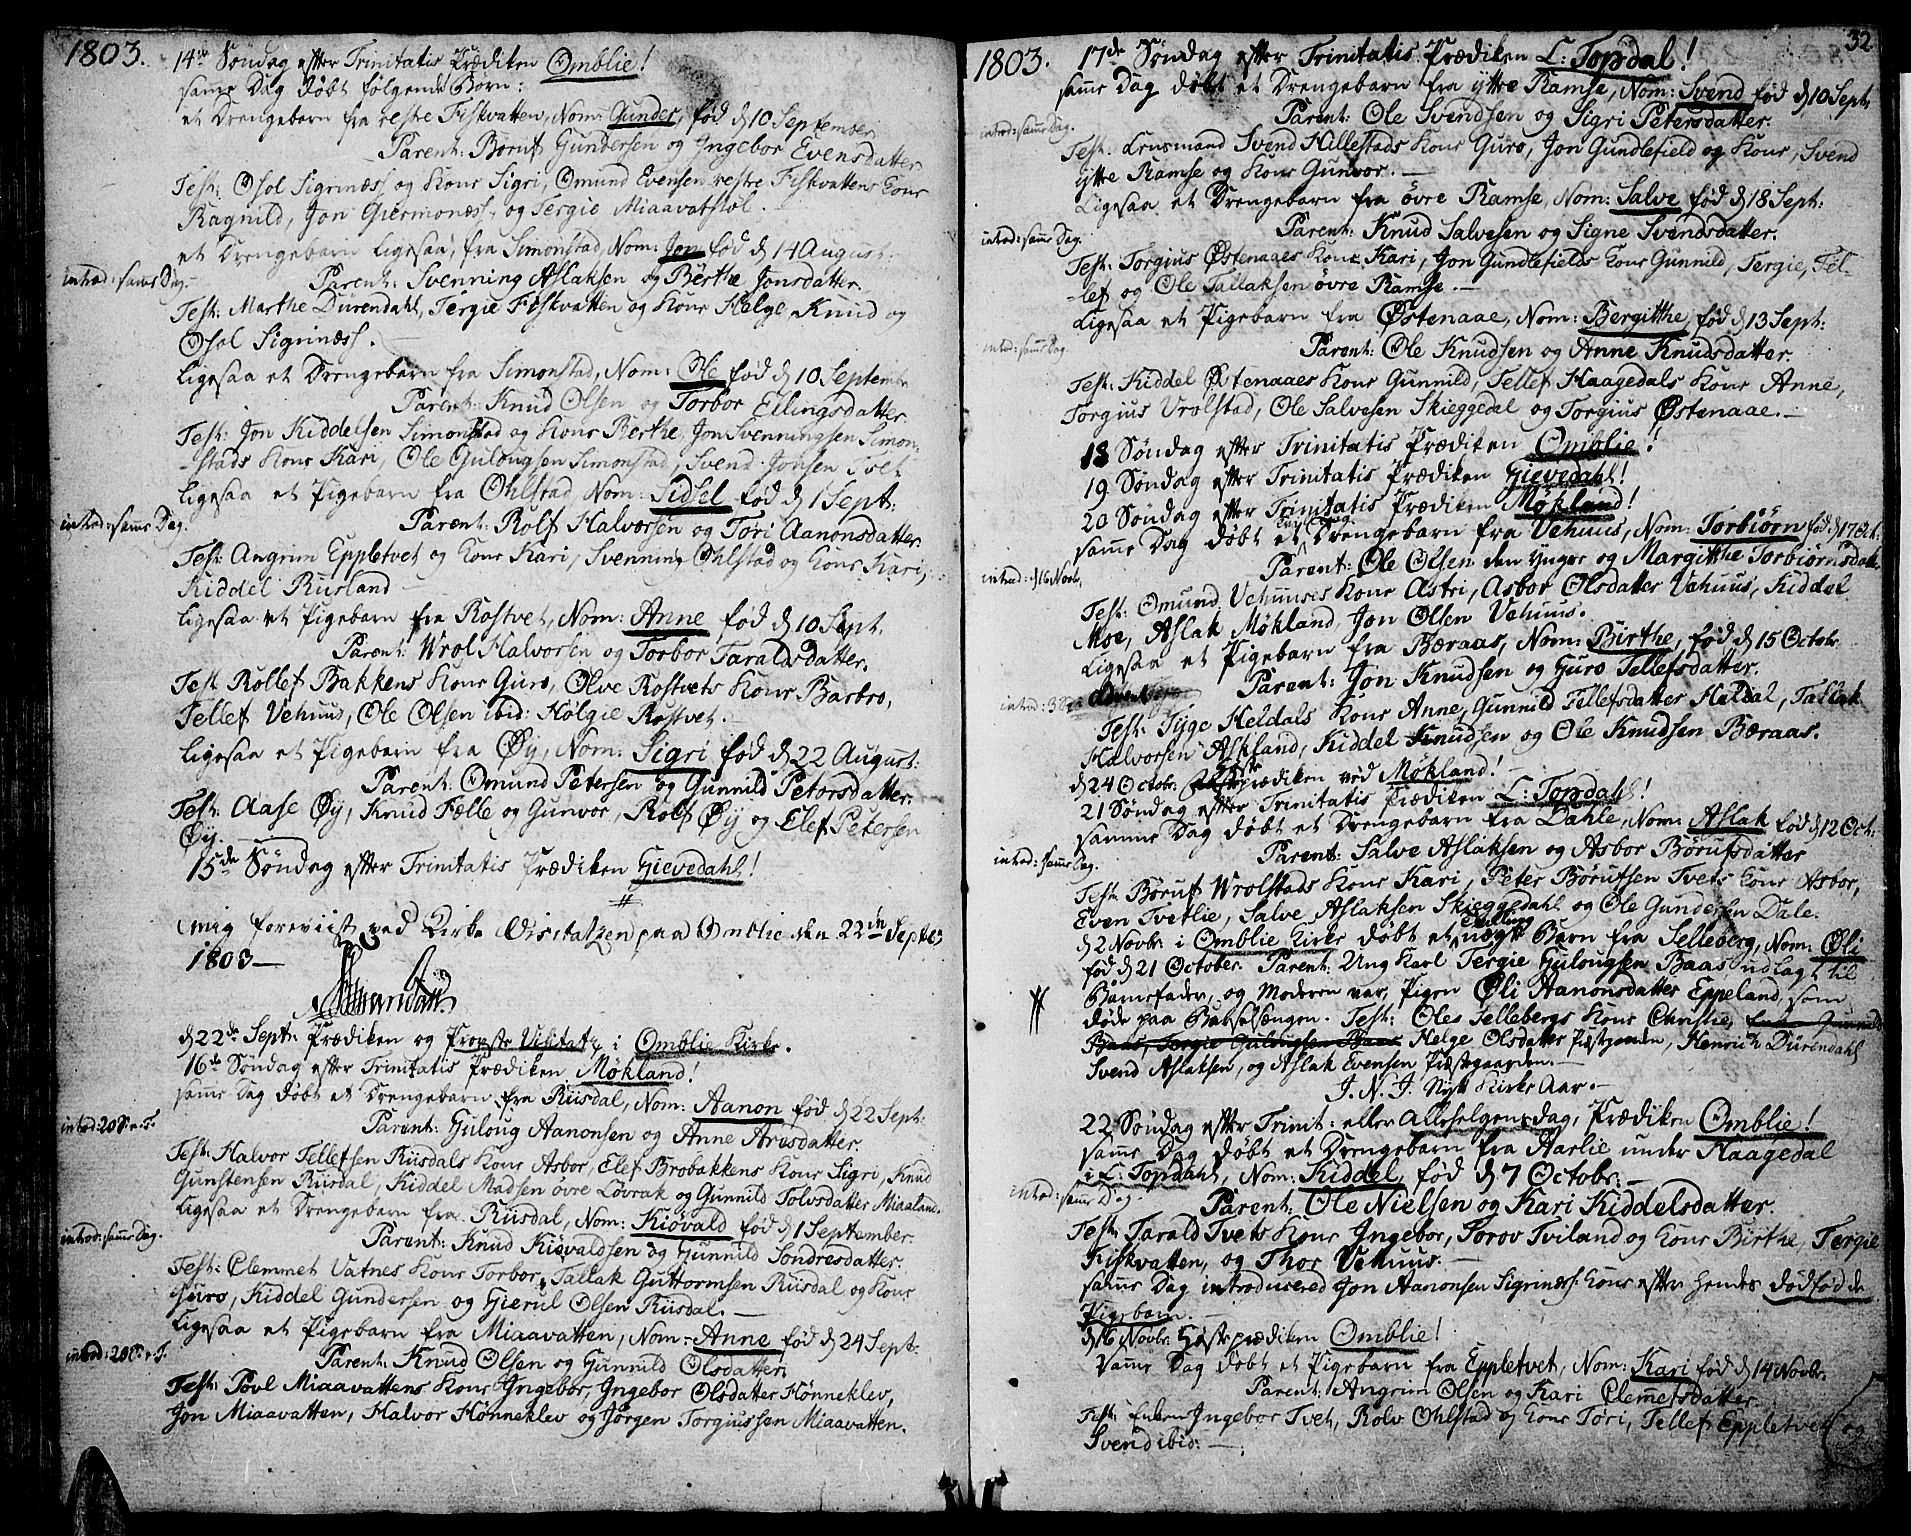 1803.
14de Søndag efter Trinitatis Prædiken Omblie!
samme Dag døbt følgende Børn:
et Drengebarn fra vestre Fiskvatten, Nom: Gunder, fød d 10 September
Parent: Børuf Gundersen og Ingebor Evensdatter
Test: Osol Sigrinæss og Kone Sigri, Omund Evensen vestre Fiskvattens Kone
Ragnild, Jon Giermonæss og Tergie Miaavatstøl.
et Drengebarn ligesaa, fra Simonstad, Nom: Jon fød d 14 August:
introd: samme Dag.
Parent: Svenning Aslaksen og Berthe Jonsdatter.
Test: Marthe Dürendahl, Tergie Fiskvatten og Kone Helge, Knud og
Osol Sigrinæss.
Ligesaa et Drengebarn fra Simonstad, Nom: Ole fød d 10 Septembr
Parent: Knud Olsen og Torbor Ellingsdatter.
Test: Jon Kiddelsen Simonstad og Kone Berthe, Jon Svenningsen Simon-
stads Kone Kari, Ole Gulougsen Simonstad, Svend Jonsen Tvet
Ligesaa et Pigebarn fra Ohlstad, Nom: Sidsel fød d 1 Sept:
introd: samme Dag.
Parent: Rolf Halvorsen og Tori Aanonsdatter.
Test: Angrim Eppletvet og Kone Kari, Svenning Ohlstad og Kone Kari,
Kiddel Rusland
Ligesaa et Pigebarn fra Rostvet, Nom: Anne fød d 10 Sept.
Parent: Wrol Halvorsen og Torbor Taraldsdatter.
Test: Rollef Bakkens Kone Guro, Olve Rostvets Kone Barbro,
Tellef Vehuus, Ole Olsen ibid: Holgie Rostvet.
Ligesaa et Pigebarn fra Øy, Nom: Sigri fød d 22 August:
Parent: Omund Petersen og Gunnild Petersdatter.
Test: Aase Øy, Knud Fælle og Gunvor, Rolf Øy og Elef Petersen
Øy.
15de Søndag efter Trinitatis Prædiken Gievedahl!
mig foreviist ved Kirke Visitatzen paa Omblie den 22de Septbr
1803
d 22de Sept: Prædiken og Provste Visitatz i Omblie Kirke.
16de Søndag efter Trinitatis Prædiken Møkland!
samme Dag døbt et Drengebarn fra Riisdal, Nom: Aanon fød d 22 Sept:
introd: 20 S. e. T.
Parent: Guloug Aanonsen og Anne Aresdatter.
Test: Halvor Tellefsen Riisdals Kone Asbor, Elef Brobakkens Kone Sigri, Knud
Gunstensen Riisdal, Kiddel Madsen øvre Løvrak og Gunnild Tolvsdatter Miaaland.
Ligesaa et Drengebarn fra Riisdal, Nom: Kiøvald fød d 1 September
introd: samme Dag.
Parent: Knud Kiøvaldsen og Gunnild Sondresdatter.
Test: Clemmet Vatnes Kone Torbor, Tallak Guttormsen Riisdal og Kone
Guro, Kiddel Gundersen og Gierul Olsen Riisdal.
Ligesaa et Pigebarn fra Miaavatten, Nom: Anne fød d 24 Sept:
introd: 20 S. e. T.
Parent: Knud Olsen og Gunnild Olsdatter.
Test: Povl Miaavattens Kone Ingebor, Ingebor Olsdatter Hønneklev,
Jon Miaavatten, Halvor Hønneklev og Jörgen Torgiussen Miaavatten.
32
1803.
17de Søndag efter Trinitatis Prædiken L: Topdal!
samme Dag døbt et Drengebarn fra ytre Ramse, Nom: Svend fød d 10 Sept:
introd: samme Dag.
Parent: Ole Svendsen og Sigri Petersdatter.
Test. Lensmand Svend Hillestads Kone Guro, Jon Gundlefield og Kone, Svend
ytre Ramse og Kone Gunvor.
Ligesaa et Drengebarn fra øvre Ramse, Nom: Salve fød d 18 Sept:
introd: samme Dag.
Parent: Knud Salvesen og Signe Svendsdatter.
Test: Torgius Østenaaes Kone Kari, Jon Gundlefields Kone Gunnild, Tergie, Tel-
lef og Ole Tallaksen øvre Ramse.
Ligesaa et Pigebarn fra Østenaae, Nom: Bergitthe, fød d 13 Sept:
introd: samme Dag.
Parent: Ole Knudsen og Anne Knudsdatter.
Test: Kiddel Østenaaes Kone Gunnild, Tellef Haagedals Kone Anne,
Torgius Vrolstad, Ole Salvesen Skieggedal og Torgius Østenaae.
18 Søndag efter Trinitatis Prædiken Omblie!
19 Søndag efter Trinitatis Prædiken Gievedahl!
20 Søndag efter Trinitatis Prædiken Møkland!
samme Dag døbt et Drengebarn fra Vehuus, Nom: Torbiørn fød d 17 Oct:
introd: d 16 Novbr.
Parent: Ole Olsen den yngre og Margitthe Torbiørnsdatter
Test: Omund Vehuuses Kone Astri, Asbor Olsdatter Vehuus, Kiddel
Moe, Aslak Møkland, Jon Olsen Vehuus.
Ligesaa et Pigebarn fra Bæraas, Nom: Birthe, fød d 15 Octobr
introd: 3 Advent
Parent: Jon Knudsen og Guro Tellefsdatter.
Test: Tyge Heldals Kone Anne, Gunnild Tellefsdatter Heldal, Tallak
Halvorsen Askland, Kiddel Knudsen og Ole Knudsen Bæraas.
d 24 Octobr. Høsteprædiken ved Møkland!
21 Søndag efter Trinitatis Prædiken L: Topdahl!
samme Dag døbt et Drengebarn fra Dahle, Nom: Aslak fød d 12 Oct:
introd: samme Dag.
Parent: Salve Aslaksen og Asbor Børufsdatter
Test: Børuf Wrolstads Kone Kari, Peter Børufsen Tvets Kone Asbor,
Even Tvetlie, Salve Aslaksen Skieggedahl og Ole Gundersen Dale.
d 2 Novbr. i Omblie Kirke døbt et uægte Barn fra Selleberg, Nom: Øli
fød d 21 October. Parent: Ung Karl Tergie Gulougsen Baas udlagt til
Barnefader, og Moderen var, Pigen Øli Aanonsdatter Eppeland, som
døde paa Barselsengen. Test: Oles Sellebergs Kone Christie, Enken Gunnild
Baas, Tergie Gulougsen Baas Helge Olsdatter Præstgaarden, Henrich Dürendahl
Svend Aslaksen, og Aslak Evensen Præstegaarden.
J. N. J. Nytt Kirke Aar.
22 Søndag efter Trinit: eller Allehelgensdag, Prædiken Omblie!
samme Dag døbt et Drengebarn fra Aarlie under Haagedal
i L: Topdahl, Nom: Kiddel, fød d 7 Octobr:
introd: samme Dag.
Parent: Ole Nielsen og Kari Kiddelsdatter.
Test: Tarald Tvets Kone Ingebor, Sorov Tviland og Kone Birthe, Tergie
Fiskvatten, og Thor Vehuus.
samme Dag introducered Jon Aanonsen Sigrinæss: Kone efter hendes dødfødde
Pigebarn.
d 16 Novbr. Høsteprædiken Omblie!
Samme Dag døbt et Pigebarn fra Eppletvet, Nom: Kari fød d 14 Novbr.
Parent: Angrim Olsen og Kari Clemetsdatter
Test: Enken Ingebor Tvet, Rolv Ohlstad og Kone Tori, Tellef Eppletvet og
Svend ibid: